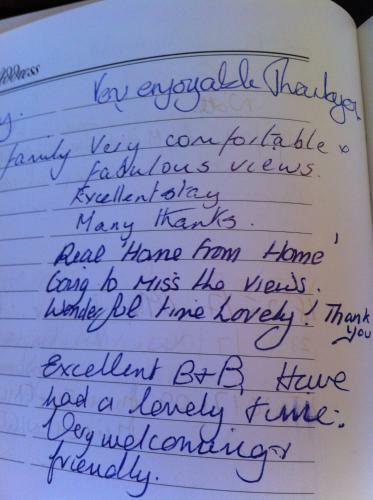 Address
Very enjoyable Thankyou
y.
family Very comfortable &
fabulous views.
Excellent stay
Many thanks.
Real 'Home From Home'
Going to miss the views.
Wonderful time Lovely! Thank
you
Excellent B+B, Have
had a lovely time.
Very welcoming &
friendly.